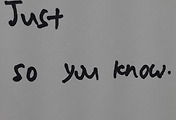 Just
so you know.